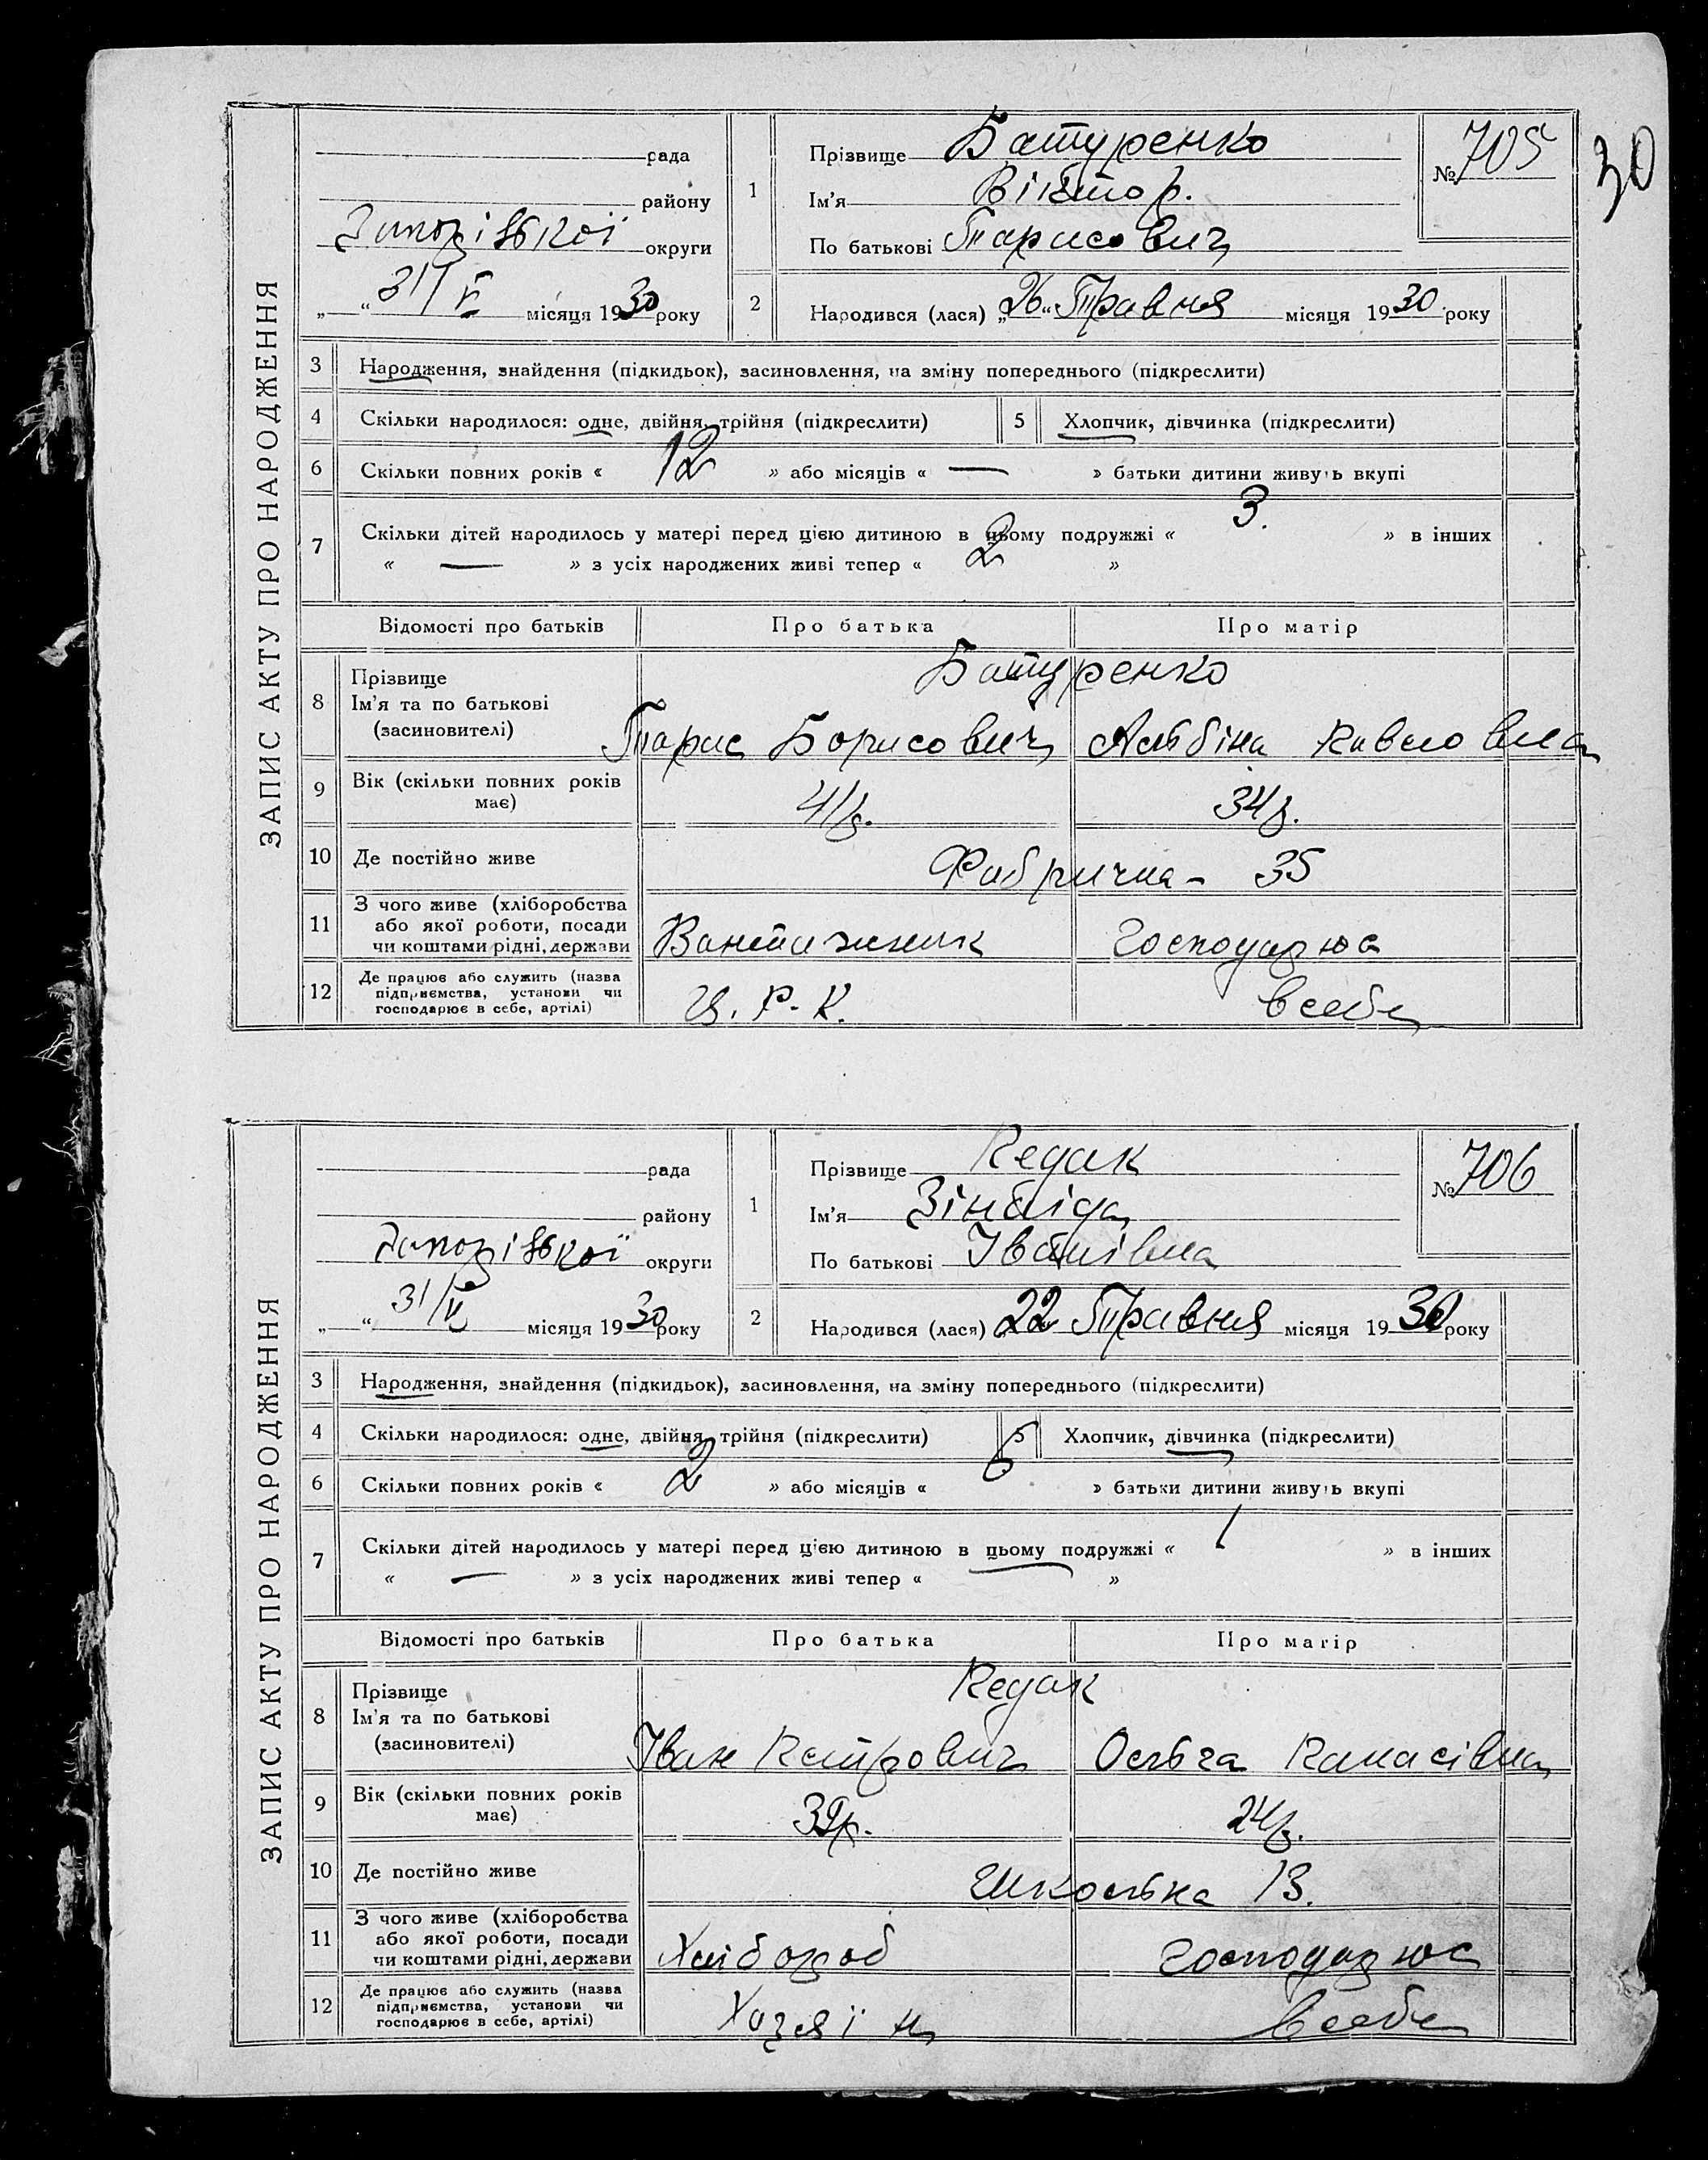 30
ЗАПИС АКТУ ПРО НАРОДЖЕННЯ
рада
району
округи
„ “ 31/V місяця 1930 року
1
Прізвище Батуренко
Ім'я Віктор.
По батькові Тарисович
№ 705
2
Народився (лася) „26“ Травня місяця 1930 року
3 Народження, знайдення (підкидьок), засиновлення, на зміну попереднього (підкреслити)
4 Скільки народилося: одне, двійня, трійня (підкреслити) 5 Хлопчик, дівчинка (підкреслити)
6 Скільки повних років « 12 » або місяців « — » батьки дитини живуть вкупі
7 Скільки дітей народилось у матері перед цією дитиною в цьому подружжі « 3. » в інших
« — » з усіх народжених живі тепер « 2 »
Відомості про батьків Про батька Про матір
8 Прізвище
Ім'я та по батькові
(засиновителі)
Батуренко
Тарис Борисович Альбіна
9 Вік (скільки повних років має) 41р. 34р.
10 Де постійно живе Фабрична - 35
11 З чого живе (хліборобства
або якої роботи, посади
чи коштами рідні, держави
Вантажник Господарює
12 Де працює або служить (назва
підприємства, установи чи
господарює в себе, артілі)
Ц. Р. К. в себе
ЗАПИС АКТУ ПРО НАРОДЖЕННЯ
рада
району
округи
„ “ 31/V місяця 1930 року
1
Прізвище Редак
Ім'я Зінаіда
По батькові Іванівна
№ 706
2
Народився (лася) 22 Травня місяця 1930 року
3 Народження, знайдення (підкидьок), засиновлення, на зміну попереднього (підкреслити)
4 Скільки народилося: одне, двійня, трійня (підкреслити) 5 Хлопчик, дівчинка (підкреслити)
6 Скільки повних років « 2 » або місяців « 6 » батьки дитини живуть вкупі
7 Скільки дітей народилось у матері перед цією дитиною в цьому подружжі « 1 » в інших
« — » з усіх народжених живі тепер « »
Відомості про батьків Про батька Про матір
8 Прізвище
Ім'я та по батькові
(засиновителі)
Редак
Іван Петрович Ольга Панасівна
9 Вік (скільки повних років має) 24р.
10 Де постійно живе Шкільна 13.
11 З чого живе (хліборобства
або якої роботи, посади
чи коштами рідні, держави
Хлібороб Господарює
12 Де працює або служить (назва
підприємства, установи чи
господарює в себе, артілі)
Хазяїн в себе